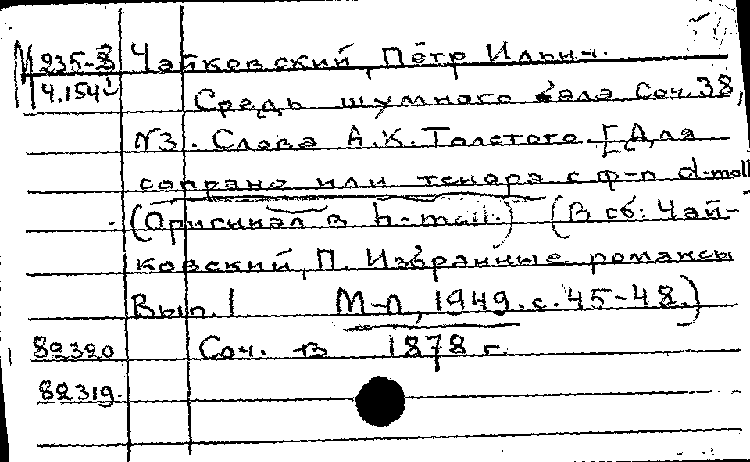 М 235-3 Чайковский, Пётр Ильич.
4.154
Средь шумного бала Соч. 38,
N3. Слова А.К. Толстого. [Для
сопрано или тенора с ф-п d-moll
(Оригинал в h-moll.) (В сб: Чай-
ковский, П. Избранные романсы
Вып. 1 М-Л, 1949. с. 45-48.)
82320 Соч. в 1878 г.
82319.